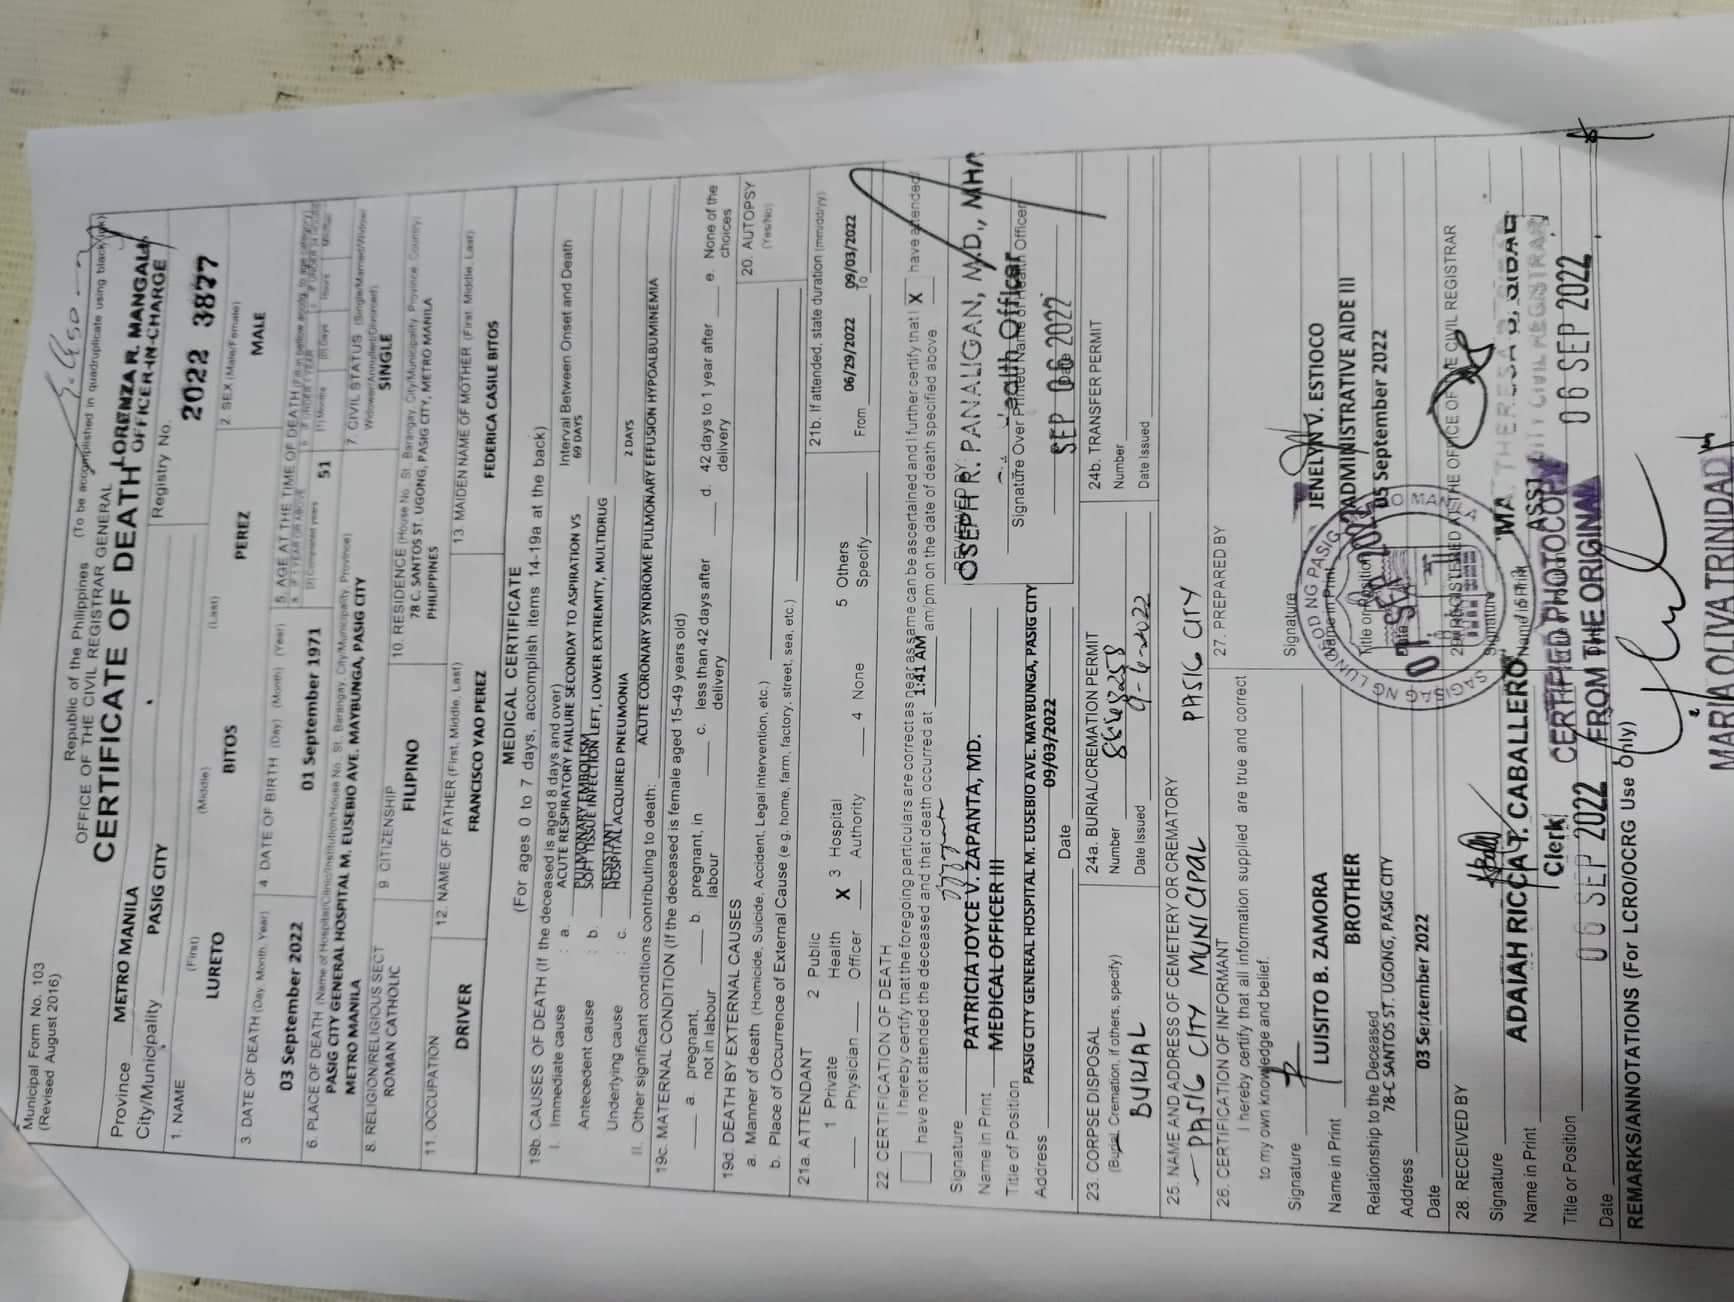 Municipal Form No. 103
(Revised August 2016)
Republic of the Philippines
(To be accomplished in quadruplicate using black ink)
OFFICE OF THE CIVIL REGISTRAR GENERAL
CERTIFICATE OF DEATH
LORENZA R. MANGALI
OFFICER-IN-CHARGE
Province METRO MANILA
City/Municipality PASIG CITY
Registry No.
2022 3877
1. NAME (First) (Middle) (Last)
LURETO BITOS PEREZ
2. SEX (Male/Female)
MALE
3. DATE OF DEATH (Day, Month, Year)
03 September 2022
4 DATE OF BIRTH (Day) (Month) (Year)
01 September 1971
5. AGE AT THE TIME OF DEATH
51
6. PLACE OF DEATH (Name of Hospital/Clinic/Institution/House No., St., Barangay, City/Municipality, Province)
PASIG CITY GENERAL HOSPITAL M. EUSEBIO AVE. MAYBUNGA, PASIG CITY
METRO MANILA
7. CIVIL STATUS (Single/Married/Widow/
Widower/Annulled/Divorced)
SINGLE
8. RELIGION/RELIGIOUS SECT
ROMAN CATHOLIC
9 CITIZENSHIP
FILIPINO
10. RESIDENCE (House No., St., Barangay, City/Municipality, Province, Country)
78 C. SANTOS ST. UGONG, PASIG CITY, METRO MANILA
PHILIPPINES
11. OCCUPATION
DRIVER
12. NAME OF FATHER (First, Middle, Last)
FRANCISCO YAO PEREZ
13. MAIDEN NAME OF MOTHER (First, Middle, Last)
FEDERICA CASILE BITOS
MEDICAL CERTIFICATE
(For ages 0 to 7 days, accomplish items 14-19a at the back)
19b. CAUSES OF DEATH (If the deceased is aged 8 days and over)
Interval Between Onset and Death
I. Immediate cause : a. ACUTE RESPIRATORY FAILURE SECONDARY TO ASPIRATION VS 69 DAYS
PULMONARY EMBOLISM
Antecedent cause : b. SOFT TISSUE INFECTION LEFT, LOWER EXTREMITY, MULTIDRUG
RESISTANT
Underlying cause : c. HOSPITAL ACQUIRED PNEUMONIA 2 DAYS
II. Other significant conditions contributing to death: ACUTE CORONARY SYNDROME PULMONARY EFFUSION HYPOALBUMINEMIA
19c. MATERNAL CONDITION (If the deceased is female aged 15-49 years old)
a. pregnant, not in labour
b. pregnant, in labour
c. less than 42 days after delivery
d. 42 days to 1 year after delivery
e. None of the choices
19d. DEATH BY EXTERNAL CAUSES
a. Manner of death (Homicide, Suicide, Accident, Legal intervention, etc.)
b. Place of Occurrence of External Cause (e.g. home, farm, factory, street, sea, etc.)
20. AUTOPSY
(Yes/No)
21a. ATTENDANT
1 Private Physician
2 Public Health Officer
X 3 Hospital Authority
4 None
5 Others Specify
21b. If attended, state duration (mm/dd/yy)
From 06/29/2022 To 09/03/2022
22 CERTIFICATION OF DEATH
I hereby certify that the foregoing particulars are correct as near as same can be ascertained and I further certify that I X have attended/
have not attended the deceased and that death occurred at 1:41 AM am/pm on the date of death specified above
Signature
Name in Print PATRICIA JOYCE V. ZAPANTA, MD.
Title of Position MEDICAL OFFICER III
Address PASIG CITY GENERAL HOSPITAL M. EUSEBIO AVE. MAYBUNGA, PASIG CITY
Date 09/03/2022
REVIEWED BY:
JOSEPH R. PANALIGAN, M.D., MHA
Health Officer
Signature Over Printed Name of Health Officer
SEP 06 2022
Date
23. CORPSE DISPOSAL
(Burial, Cremation, if others, specify)
BURIAL
24a. BURIAL/CREMATION PERMIT
Number
Date Issued 9-6-2022
24b. TRANSFER PERMIT
Number
Date Issued
25. NAME AND ADDRESS OF CEMETERY OR CREMATORY
PASIG CITY MUNICIPAL PASIG CITY
26. CERTIFICATION OF INFORMANT
I hereby certify that all information supplied are true and correct
to my own knowledge and belief.
Signature
Name in Print LUISITO B. ZAMORA
Relationship to the Deceased BROTHER
Address 78-C SANTOS ST. UGONG, PASIG CITY
Date 03 September 2022
27. PREPARED BY
Signature
Name in Print JENELYN V. ESTIOCO
Title or Position ADMINISTRATIVE AIDE III
Date 05 September 2022
28. RECEIVED BY
Signature
Name in Print ADAIAH RICCA T. CABALLERO
Title or Position Clerk
Date 06 SEP 2022
29. REGISTERED AT THE OFFICE OF THE CIVIL REGISTRAR
Signature
Name in Print
CITY CIVIL REGISTRAR
06 SEP 2022
SAGISAG NG LUNGSOD NG PASIG
CERTIFIED PHOTOCOPY
FROM THE ORIGINAL
REMARKS/ANNOTATIONS (For LCRO/OCRG Use Only)
MARIA OLIVA TRINIDAD